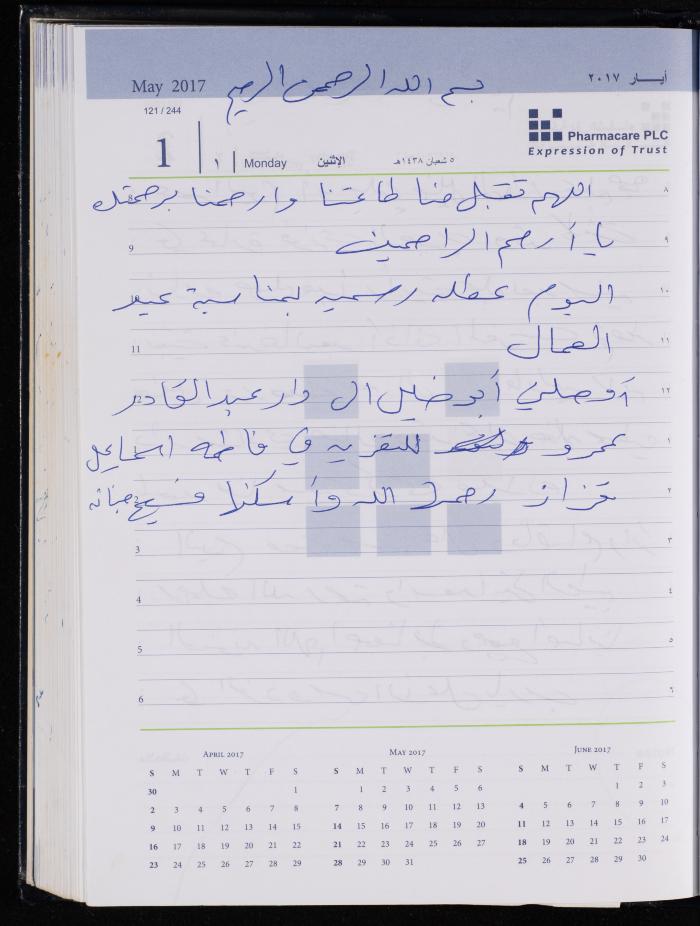 May 2017 بسم الله الرحمن الرحيم أيــار ٢٠١٧
121 / 244
1 ١ Monday الإثنين ٥ شعبان ١٤٣٨هـ
Pharmacare PLC
Expression of Trust
اللهم تقبل منا طاعتنا وارحمنا برحمتك ٨
9 يا أرحم الراحمين ٩
اليوم عطله رسميه بمناسبة عيد ١٠
11 العمال ١١
أوصلني أبو خليل ال دار عبد القادر ١٢
عمرو للتعزيه في فاطمه اسماعيل ١
قزاز رحمها الله وأسكنها فسيح جناته ٢
3 ٣
4 ٤
5 ٥
6 ٦
APRIL 2017
S M T W T F S
30 1
2 3 4 5 6 7 8
9 10 11 12 13 14 15
16 17 18 19 20 21 22
23 24 25 26 27 28 29
MAY 2017
S M T W T F S
1 2 3 4 5 6
7 8 9 10 11 12 13
14 15 16 17 18 19 20
21 22 23 24 25 26 27
28 29 30 31
JUNE 2017
S M T W T F S
1 2 3
4 5 6 7 8 9 10
11 12 13 14 15 16 17
18 19 20 21 22 23 24
25 26 27 28 29 30